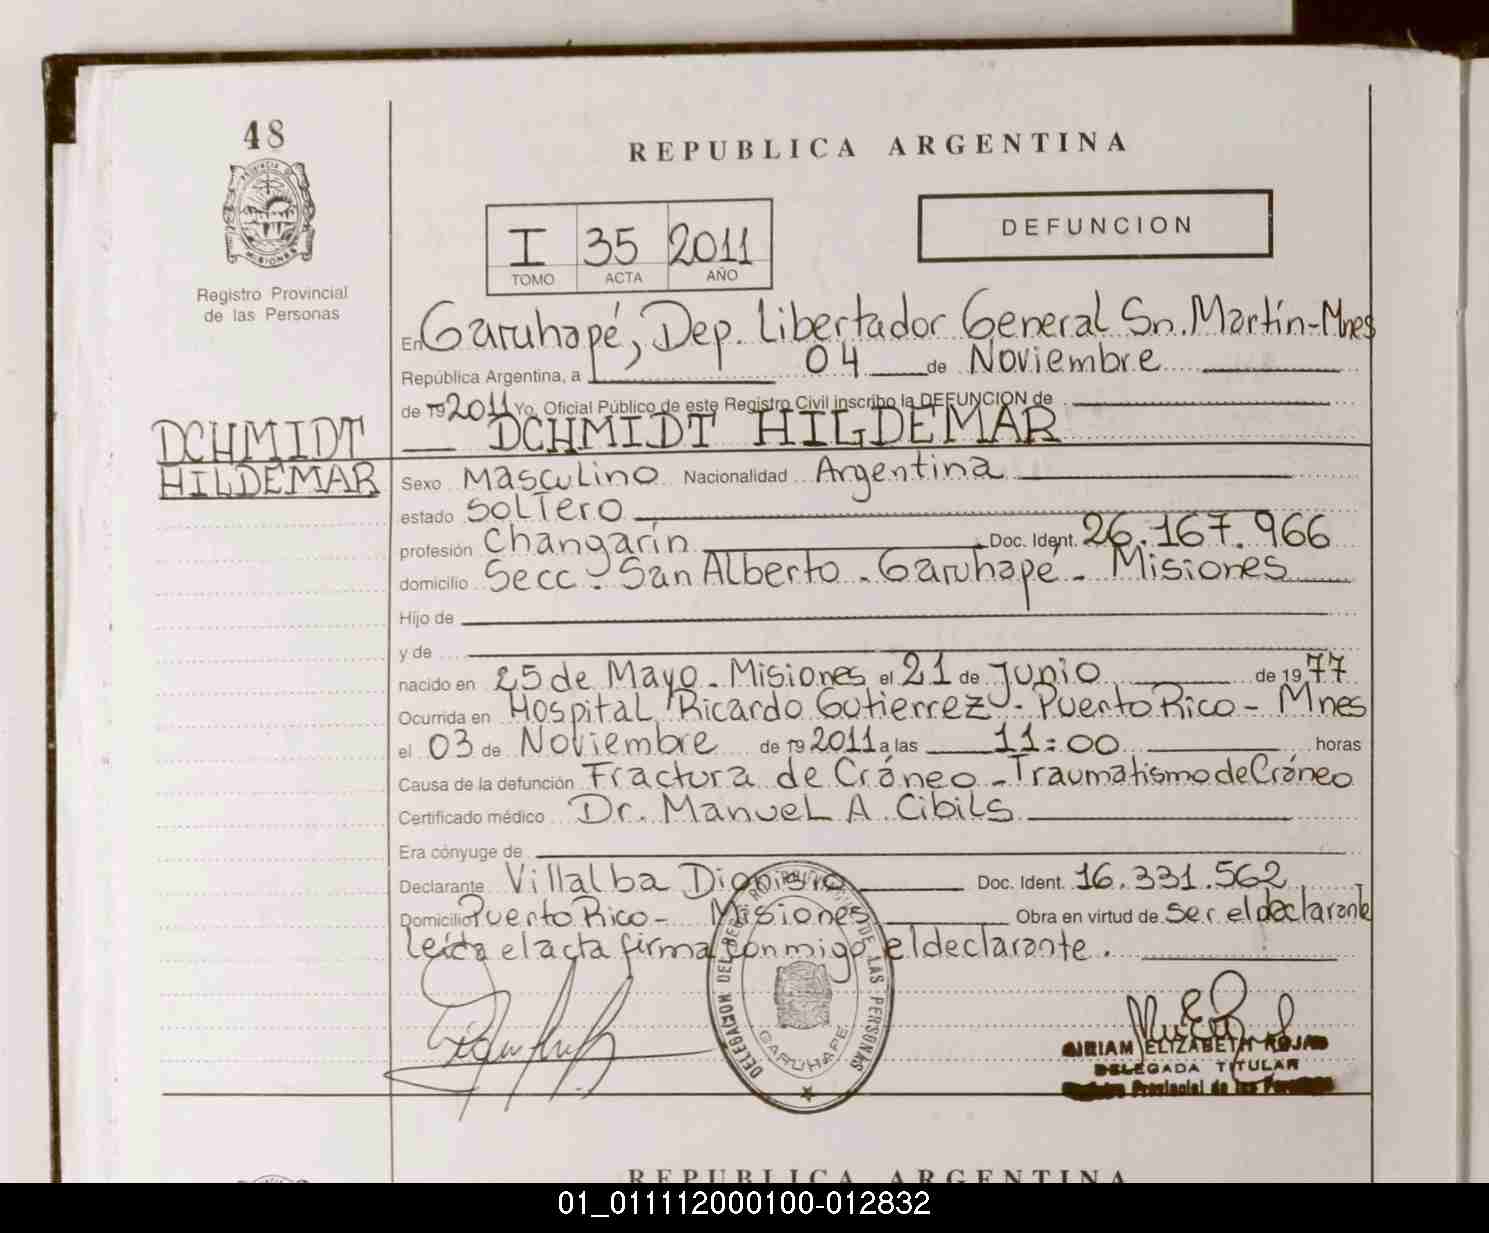 48
PROVINCIA D
MISIONES
Registro Provincial
de las Personas
REPUBLICA ARGENTINA
I 35 2011
TOMO ACTA AÑO
DEFUNCION
En Garuhapé, Dep. Libertador General Sn. Martín-Mnes
República Argentina, a 04 de Noviembre
de 19 2011 Yo, Oficial Público de este Registro Civil inscribo la DEFUNCION de
DCHMIDT HILDEMAR
DCHMIDT
HILDEMAR
Sexo Masculino Nacionalidad Argentina
estado Soltero
profesión Changarín Doc. Ident. 26.167.966
domicilio Secc. San Alberto - Garuhapé - Misiones
Hijo de
y de
nacido en 25 de Mayo - Misiones el 21 de Junio de 1977
Ocurrida en Hospital Ricardo Gutierrez - Puerto Rico - Mnes
el 03 de Noviembre de 19 2011 a las 11:00 horas
Causa de la defunción Fractura de Cráneo - Traumatismo de Cráneo
Certificado médico Dr. Manuel A. Cibils
Era cónyuge de
Declarante Villalba Dionisio Doc. Ident. 16.331.562
Domicilio Puerto Rico - Misiones Obra en virtud de Ser el declarante
leída el acta firma conmigo el declarante.
DELEGACION DEL REGISTRO PROVINCIAL DE LAS PERSONAS
GARUHAPE
MIRIAM ELIZABETH ROJAS
DELEGADA TITULAR
Registro Provincial de las Personas
REPUBLICA ARGENTINA
01_011112000100-012832